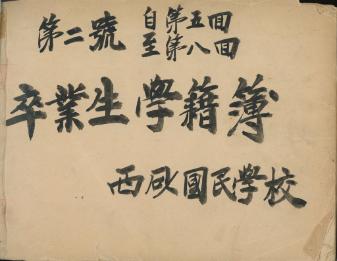 第二號 自第五回
至第八回
卒業生學籍簿
西國民學校